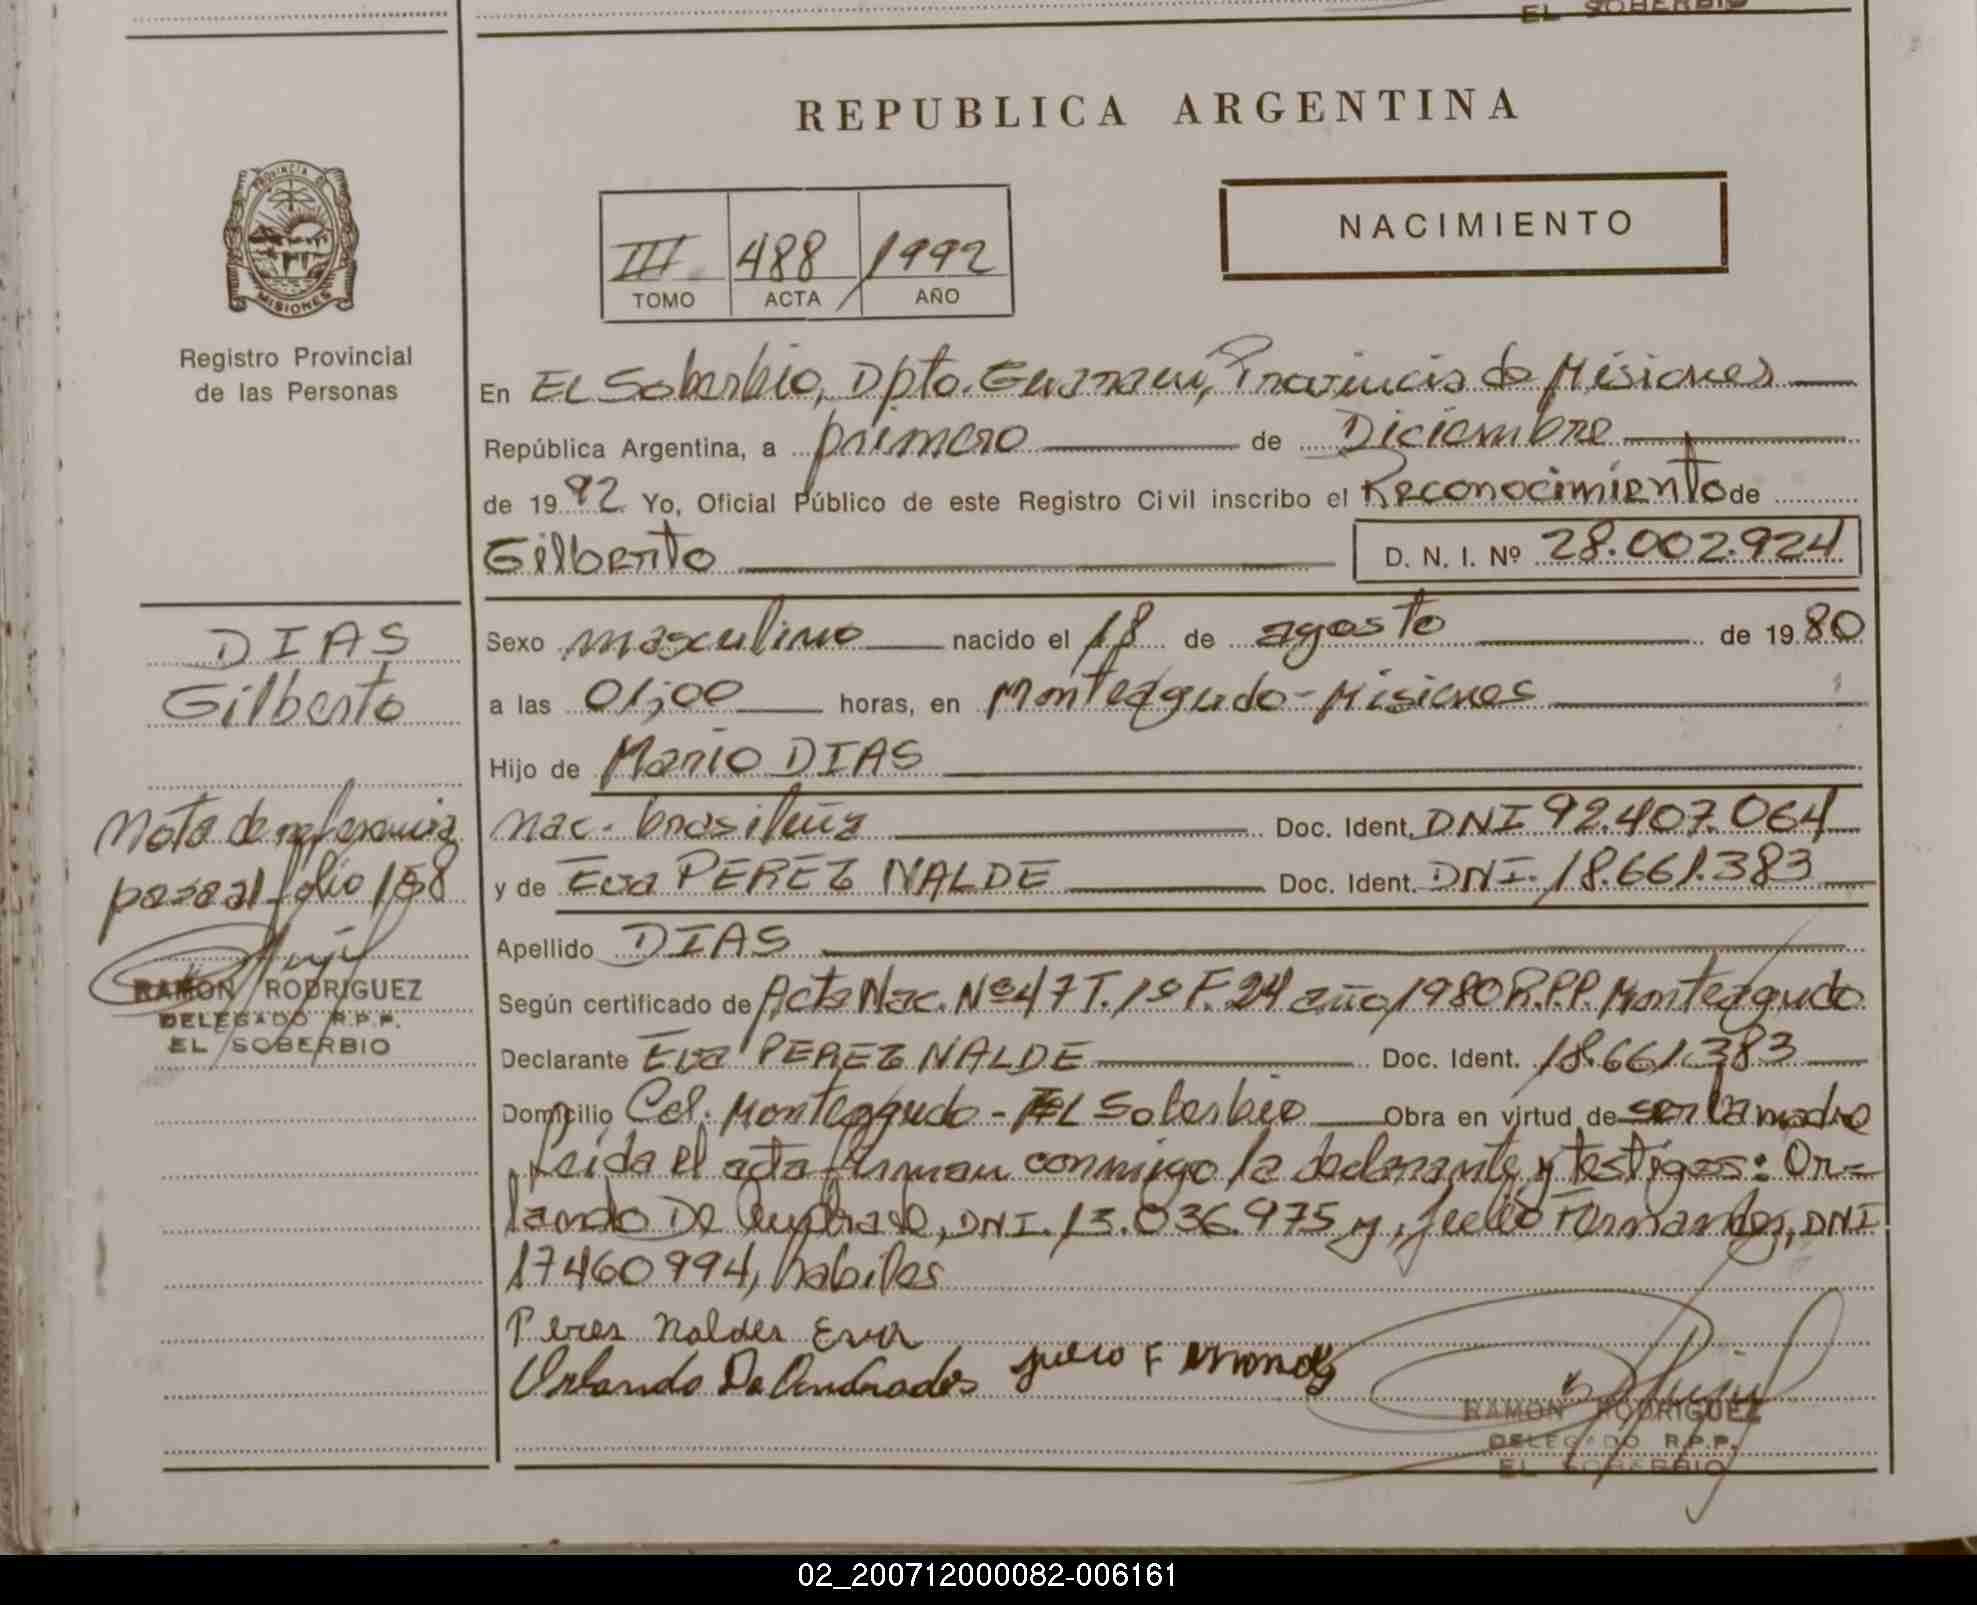 EL SOBERBIO
REPUBLICA ARGENTINA
PROVINCIA DE
MISIONES
NACIMIENTO
III 488 1992
TOMO ACTA AÑO
Registro Provincial
de las Personas
En EL Soberbio, Dpto. Guarani, Provincia de Misiones
República Argentina, a primero de Diciembre
de 1992 Yo, Oficial Público de este Registro Civil inscribo el Reconocimiento de
Gilberto D. N. I. Nº 28.002.924
DIAS
Gilberto
Nota de referencia
pasa al folio 158
RAMON RODRIGUEZ
DELEGADO R.P.P.
EL SOBERBIO
Sexo masculino nacido el 18 de agosto de 1980
a las 01;00 horas, en Monteagudo - Misiones
Hijo de Mario DIAS
Nac. brasileña Doc. Ident. DNI 92.407.064
y de Eva PEREZ NALDE Doc. Ident. DNI. 18.661.383
Apellido DIAS
Según certificado de Acta Nac. Nº 47 T. 1º F. 24 año 1980 R.P.P. Monteagudo
Declarante Eva PEREZ NALDE Doc. Ident. 18.661.383
Domicilio Col. Monteagudo - EL Soberbio Obra en virtud de ser la madre
Leida el acta firman conmigo la declarante y testigos: Or=
lando De Andrade, DNI. 13.036.975 y, Julio Fernandez, DNI
17460994, habiles
Peres Naldes Eva
Orlando De Andrades Julio Fernandez
RAMON RODRIGUEZ
DELEGADO R.P.P.
EL SOBERBIO
02_200712000082-006161